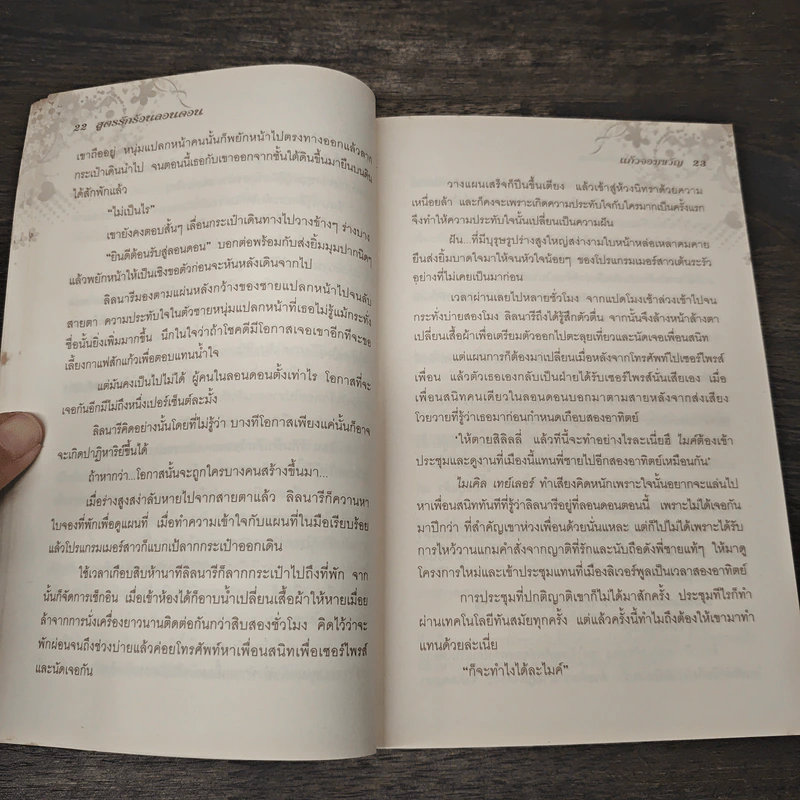 22 สูตรรักร้อนลอนดอน
เขาถืออยู่ หนุ่มแปลกหน้าคนนั้นก็พยักหน้าไปตรงทางออกแล้วลาก
กระเป๋าเดินนำไป จนตอนนี้เธอกับเขาออกจากชั้นใต้ดินขึ้นมายืนบนดิน
ได้สักพักแล้ว
“ไม่เป็นไร”
เขายังคงตอบสั้นๆ เลื่อนกระเป๋าเดินทางไปวางข้างๆ ร่างบาง
“ยินดีต้อนรับสู่ลอนดอน” บอกต่อพร้อมกับส่งยิ้มมุมปากนิดๆ
แล้วพยักหน้าให้เป็นเชิงขอตัวก่อนจะหันหลังเดินจากไป
ลิลนารีมองตามแผ่นหลังกว้างของชายแปลกหน้าไปจนลับ
สายตา ความประทับใจในตัวชายหนุ่มแปลกหน้าที่เธอไม่รู้แม้กระทั่ง
ชื่อนั้นยิ่งเพิ่มมากขึ้น นึกในใจว่าถ้าโชคดีมีโอกาสเจอเขาอีกทีจะขอ
เลี้ยงกาแฟสักแก้วเพื่อตอบแทนน้ำใจ
แต่มันคงเป็นไปไม่ได้ ผู้คนในลอนดอนตั้งเท่าไร โอกาสที่จะ
เจอกันอีกมีไม่ถึงหนึ่งเปอร์เซ็นต์ละมั้ง
ลิลนารีคิดอย่างนั้นโดยที่ไม่รู้ว่า บางทีโอกาสเพียงแค่นั้นก็อาจ
จะเกิดปาฏิหาริย์ขึ้นได้
ถ้าหากว่า...โอกาสนั้นจะถูกใครบางคนสร้างขึ้นมา...
เมื่อร่างสูงสง่าลับหายไปจากสายตาแล้ว ลิลนารีก็ควานหา
ใบจองที่พักเพื่อดูแผนที่ เมื่อทำความเข้าใจกับแผนที่ในมือเรียบร้อย
แล้วโปรแกรมเมอร์สาวก็แบกเป้ลากกระเป๋าออกเดิน
ใช้เวลาเกือบสิบห้านาทีลิลนารีก็ลากกระเป๋าไปถึงที่พัก จาก
นั้นก็จัดการเช็กอิน เมื่อเข้าห้องได้ก็อาบน้ำเปลี่ยนเสื้อผ้าให้หายเมื่อย
ล้าจากการนั่งเครื่องยาวนานติดต่อกันกว่าสิบสองชั่วโมง คิดไว้ว่าจะ
พักผ่อนจนถึงช่วงบ่ายแล้วค่อยโทรศัพท์หาเพื่อนสนิทเพื่อเซอร์ไพรส์
และนัดเจอกัน
แก้วจอมขวัญ 23
วางแผนเสร็จก็ปีนขึ้นเตียง แล้วเข้าสู่ห้วงนิทราด้วยความ
เหนื่อยล้า และก็คงจะเพราะเกิดความประทับใจกับใครมากเป็นครั้งแรก
จึงทำให้ความประทับใจนั้นเปลี่ยนเป็นความฝัน
ฝัน...ที่มีบุรุษรูปร่างสูงใหญ่สง่างามใบหน้าหล่อเหลาคมคาย
ยืนส่งยิ้มบาดใจมาให้จนหัวใจน้อยๆ ของโปรแกรมเมอร์สาวเต้นระรัว
อย่างที่ไม่เคยเป็นมาก่อน
เวลาผ่านเลยไปหลายชั่วโมง จากแปดโมงเช้าล่วงเข้าไปจน
กระทั่งบ่ายสองโมง ลิลนารีถึงได้รู้สึกตัวตื่น จากนั้นจึงล้างหน้าล้างตา
เปลี่ยนเสื้อผ้าเพื่อเตรียมตัวออกไปตะลุยเที่ยวและนัดเจอเพื่อนสนิท
แต่แผนการก็ต้องมาเปลี่ยนเมื่อหลังจากโทรศัพท์ไปเซอร์ไพรส์
เพื่อน แล้วตัวเองกลับเป็นฝ่ายได้รับเซอร์ไพรส์นั่นเสียเอง เมื่อ
เพื่อนสนิทคนเดียวในลอนดอนบอกมาตามสายหลังจากส่งเสียง
โวยวายที่รู้ว่าเธอมาก่อนกำหนดเกือบสองอาทิตย์
‘ให้ตายสิลิลลี่ แล้วทีนี้จะทำอย่างไรละเนี่ยฮึ ไมค์ต้องเข้า
ประชุมและดูงานที่เมืองนี้แทนพี่ชายไปอีกสองอาทิตย์เหมือนกัน’
ไมเคิล เทย์เลอร์ ทำเสียงคิดหนักเพราะใจนั้นอยากจะแล่นไป
หาเพื่อนสนิททันทีที่รู้ว่าลิลนารีอยู่ที่ลอนดอนตอนนี้ เพราะไม่ได้เจอกัน
มาปีกว่า ที่สำคัญเขาห่วงเพื่อนด้วยนั่นแหละ แต่ก็ไปไม่ได้เพราะได้รับ
การไหว้วานแกมคำสั่งจากญาติที่รักและนับถือดังพี่ชายแท้ๆ ให้มาดู
โครงการใหม่และเข้าประชุมแทนที่เมืองลิเวอร์พูลเป็นเวลาสองอาทิตย์
การประชุมที่ปกติญาติเขาก็ไม่ได้มาสักครั้ง ประชุมทีไรก็ทำ
ผ่านเทคโนโลยีทันสมัยทุกครั้ง แต่แล้วครั้งนี้ทำไมถึงต้องให้เขามาทำ
แทนด้วยล่ะเนี่ย
“ก็จะทำไงได้ล่ะไมค์”